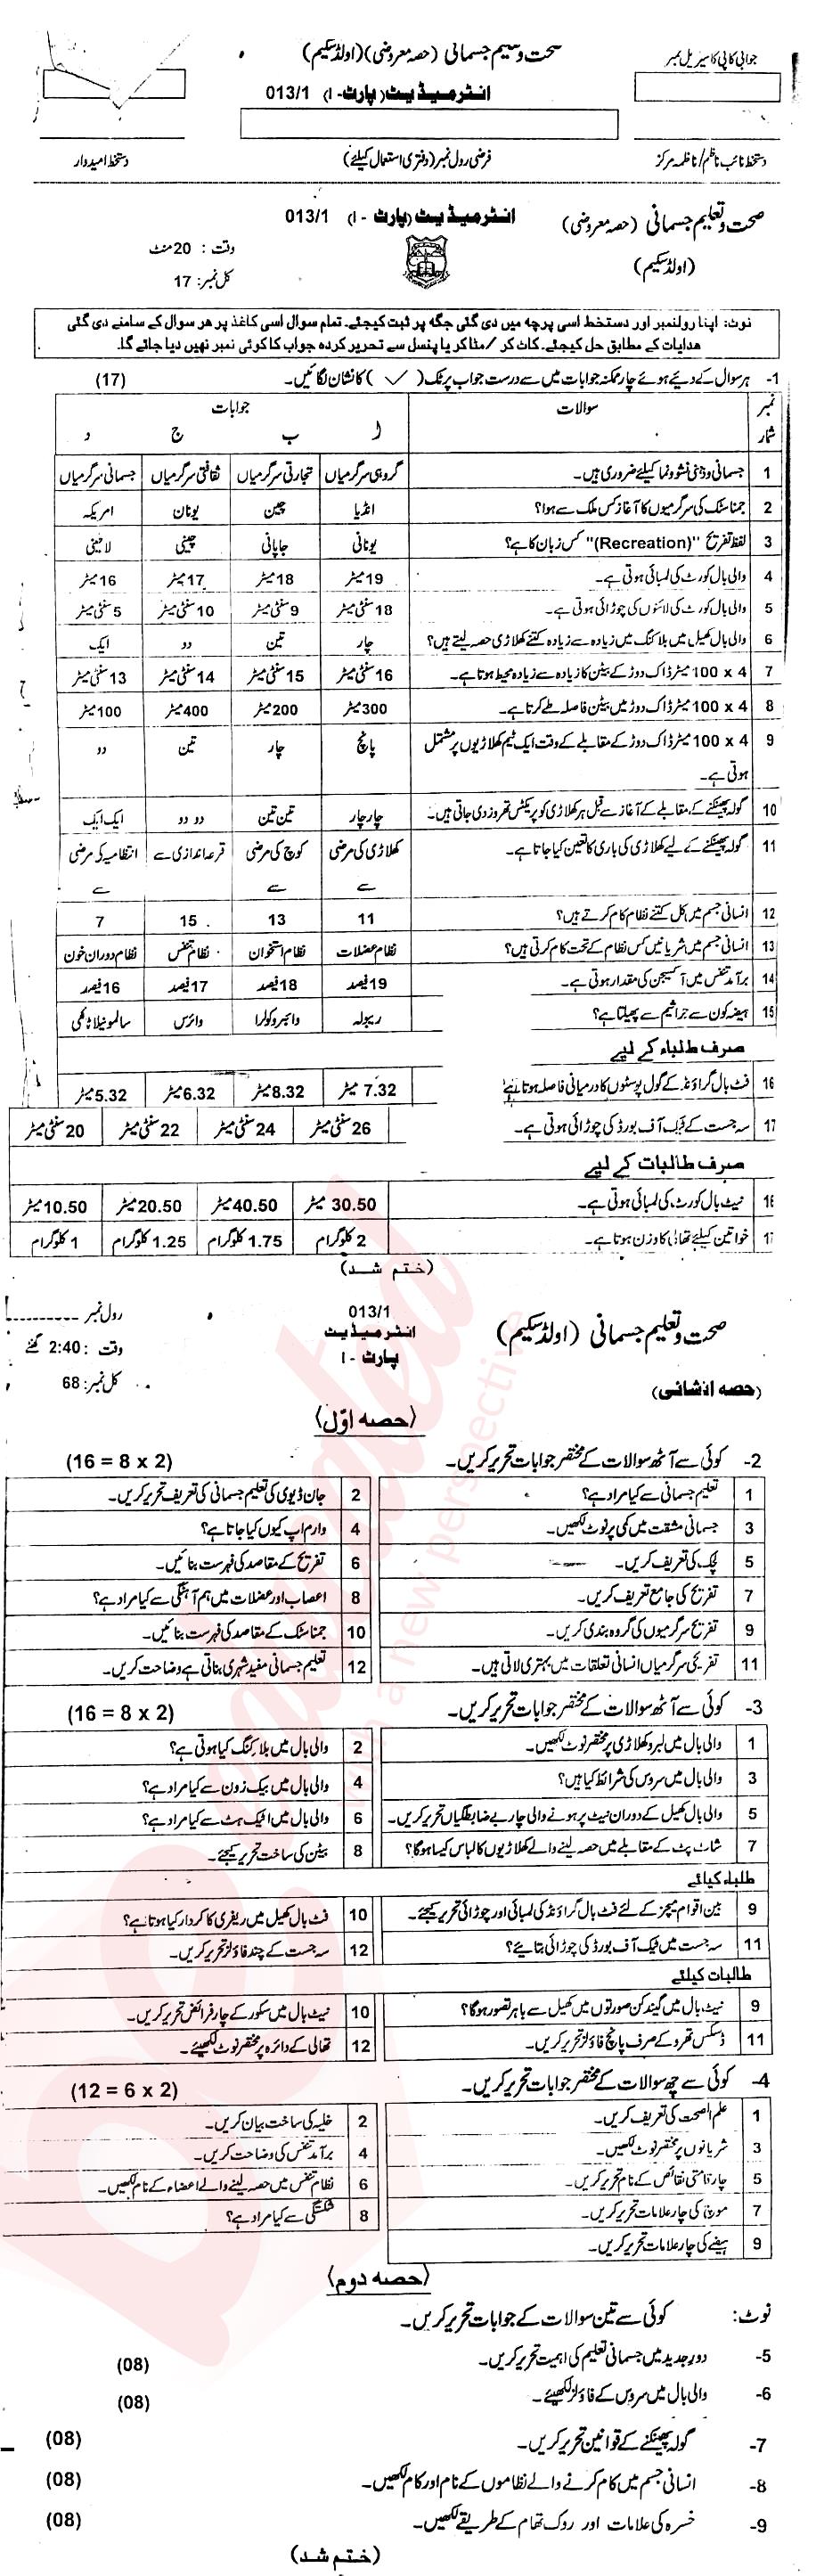 صحت و تعلیم جسمانی (حصہ معروضی) (اولڈ سکیم)
جوابی کاپی کا سیریل نمبر
انٹرمیڈیٹ (پارٹ - I) 013/1
دستخط نائب ناظم/ناظمہ مرکز
فرضی رول نمبر (دفتری استعمال کیلئے)
دستخط امیدوار
صحت و تعلیم جسمانی (حصہ معروضی) انٹرمیڈیٹ (پارٹ - I) 013/1
(اولڈ سکیم)
وقت : 20 منٹ
کل نمبر: 17
نوٹ: اپنا رولنمبر اور دستخط اسی پرچہ میں دی گئی جگہ پر ثبت کیجئے۔ تمام سوال اسی کاغذ پر ھر سوال کے سامنے دی گئی
ھدایات کے مطابق حل کیجئے۔ کاٹ کر / مٹا کر یا پنسل سے تحریر کردہ جواب کا کوئی نمبر نہیں دیا جائے گا۔
1- ہر سوال کے دیئے ہوئے چار ممکنہ جوابات میں سے درست جواب پر ٹک (✓) کا نشان لگائیں۔ (17)
نمبر شمار سوالات جوابات
ا ب ج د
1 جسمانی و ذہنی نشوونما کیلئے ضروری ہیں۔ گروہی سرگرمیاں تجارتی سرگرمیاں ثقافتی سرگرمیاں جسمانی سرگرمیاں
2 جمناسٹک کی سرگرمیوں کا آغاز کس ملک سے ہوا؟ انڈیا چین یونان امریکہ
3 لفظ تفریح "(Recreation)" کس زبان کا ہے؟ یونانی جاپانی چینی لاطینی
4 والی بال کورٹ کی لمبائی ہوتی ہے۔ 19 میٹر 18 میٹر 17 میٹر 16 میٹر
5 والی بال کورٹ کی لائنوں کی چوڑائی ہوتی ہے۔ 18 سنٹی میٹر 9 سنٹی میٹر 10 سنٹی میٹر 5 سنٹی میٹر
6 والی بال کھیل میں بلاکنگ میں زیادہ سے زیادہ کتنے کھلاڑی حصہ لیتے ہیں؟ چار تین دو ایک
7 4 x 100 میٹر ڈاک دوڑ کے بیٹن کا زیادہ سے زیادہ محیط ہوتا ہے۔ 16 سنٹی میٹر 15 سنٹی میٹر 14 سنٹی میٹر 13 سنٹی میٹر
8 4 x 100 میٹر ڈاک دوڑ میں بیٹن فاصلہ طے کرتا ہے۔ 300 میٹر 200 میٹر 400 میٹر 100 میٹر
9 4 x 100 میٹر ڈاک دوڑ کے مقابلے کے وقت ایک ٹیم کھلاڑیوں پر مشتمل پانچ چار تین دو
ہوتی ہے۔
10 گولہ پھینکنے کے مقابلے کے آغاز سے قبل ہر کھلاڑی کو پریکٹس تھروز دی جاتی ہیں۔ چار چار تین تین دو دو ایک ایک
11 گولہ پھینکنے کے لیے کھلاڑی کی باری کا تعین کیا جاتا ہے۔ کھلاڑی کی مرضی سے کوچ کی مرضی سے قرعہ اندازی سے انتظامیہ کی مرضی سے
12 انسانی جسم میں کل کتنے نظام کام کرتے ہیں؟ 11 13 15 7
13 انسانی جسم میں شریانیں کس نظام کے تحت کام کرتی ہیں؟ نظام عضلات نظام استخوان نظام تنفس نظام دوران خون
14 برآمد تنفس میں آکسیجن کی مقدار ہوتی ہے۔ 19 فیصد 18 فیصد 17 فیصد 16 فیصد
15 ہیضہ کون سے جراثیم سے پھیلتا ہے؟ ریبولہ وائبروکولرا وائرس سالمونیلا ٹائفی
صرف طلباء کے لیے
16 فٹ بال گراؤنڈ کے گول پوسٹوں کا درمیانی فاصلہ ہوتا ہے 7.32 میٹر 8.32 میٹر 6.32 میٹر 5.32 میٹر
17 سہ جست کے ٹیک آف بورڈ کی چوڑائی ہوتی ہے۔ 26 سنٹی میٹر 24 سنٹی میٹر 22 سنٹی میٹر 20 سنٹی میٹر
صرف طالبات کے لیے
16 نیٹ بال کورٹ کی لمبائی ہوتی ہے۔ 30.50 میٹر 40.50 میٹر 20.50 میٹر 10.50 میٹر
17 خواتین کیلئے تھالی کا وزن ہوتا ہے۔ 2 کلوگرام 1.75 کلوگرام 1.25 کلوگرام 1 کلوگرام
(ختم شد)
صحت و تعلیم جسمانی (اولڈ سکیم)
013/1
انٹرمیڈیٹ
پارٹ - I
رول نمبر
وقت : 2:40 گھنٹے
کل نمبر: 68
(حصہ انشائی)
(حصہ اوّل)
2- کوئی سے آٹھ سوالات کے مختصر جوابات تحریر کریں۔ (16 = 8 x 2)
1 تعلیم جسمانی سے کیا مراد ہے؟ 2 جان ڈیوی کی تعلیم جسمانی کی تعریف تحریر کریں۔
3 جسمانی مشقت میں کمی پر نوٹ لکھیں۔ 4 وارم اپ کیوں کیا جاتا ہے؟
5 لچک کی تعریف کریں۔ 6 تفریح کے مقاصد کی فہرست بنائیں۔
7 تفریح کی جامع تعریف کریں۔ 8 اعصاب اور عضلات میں ہم آہنگی سے کیا مراد ہے؟
9 تفریح سرگرمیوں کی گروہ بندی کریں۔ 10 جمناسٹک کے مقاصد کی فہرست بنائیں۔
11 تفریحی سرگرمیاں انسانی تعلقات میں بہتری لاتی ہیں۔ 12 تعلیم جسمانی مفید شہری بناتی ہے وضاحت کریں۔
3- کوئی سے آٹھ سوالات کے مختصر جوابات تحریر کریں۔ (16 = 8 x 2)
1 والی بال میں لبرو کھلاڑی پر مختصر نوٹ لکھیں۔ 2 والی بال میں بلاکنگ کیا ہوتی ہے؟
3 والی بال میں سروس کی شرائط کیا ہیں؟ 4 والی بال میں بیک زون سے کیا مراد ہے؟
5 والی بال کھیل کے دوران نیٹ پر ہونے والی چار بے ضابطگیاں تحریر کریں۔ 6 والی بال میں اٹیک ہٹ سے کیا مراد ہے؟
7 شاٹ پٹ کے مقابلے میں حصہ لینے والے کھلاڑیوں کا لباس کیسا ہوگا؟ 8 بیٹن کی ساخت تحریر کیجئے۔
طلباء کیلئے
9 بین اقوام میچز کے لئے فٹ بال گراؤنڈ کی لمبائی اور چوڑائی تحریر کیجئے۔ 10 فٹ بال کھیل میں ریفری کا کردار کیا ہوتا ہے؟
11 سہ جست میں ٹیک آف بورڈ کی چوڑائی بتایئے؟ 12 سہ جست کے چند فاؤلز تحریر کریں۔
طالبات کیلئے
9 نیٹ بال میں گیند کن صورتوں میں کھیل سے باہر تصور ہوگا؟ 10 نیٹ بال میں سکورر کے چار فرائض تحریر کریں۔
11 ڈسکس تھرو کے صرف پانچ فاؤلز تحریر کریں۔ 12 تھالی کے دائرہ پر مختصر نوٹ لکھیئے۔
4- کوئی سے چھ سوالات کے مختصر جوابات تحریر کریں۔ (12 = 6 x 2)
1 علم الصحت کی تعریف کریں۔ 2 خلیہ کی ساخت بیان کریں۔
3 شریانوں پر مختصر نوٹ لکھیں۔ 4 برآمد تنفس کی وضاحت کریں۔
5 چار قامتی نقائص کے نام تحریر کریں۔ 6 نظام تنفس میں حصہ لینے والے اعضاء کے نام لکھیں۔
7 موچ کی چار علامات تحریر کریں۔ 8 شکستگی سے کیا مراد ہے؟
9 ہیضے کی چار علامات تحریر کریں۔
(حصہ دوم)
نوٹ: کوئی سے تین سوالات کے جوابات تحریر کریں۔
5- دور جدید میں جسمانی تعلیم کی اہمیت تحریر کریں۔ (08)
6- والی بال میں سروس کے فاؤلز لکھیئے۔ (08)
7- گولہ پھینکنے کے قوانین تحریر کریں۔ (08)
8- انسانی جسم میں کام کرنے والے نظاموں کے نام اور کام لکھیں۔ (08)
9- خسرہ کی علامات اور روک تھام کے طریقے لکھیں۔ (08)
(ختم شد)